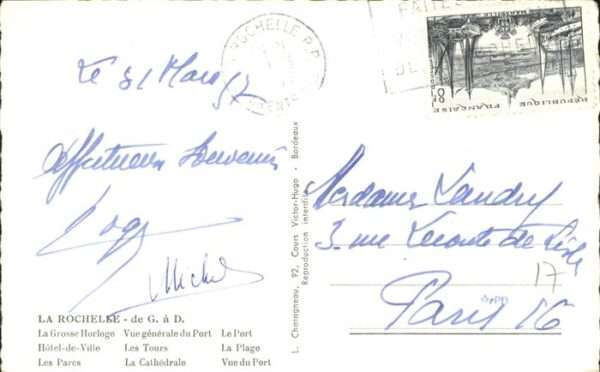 LA ROCHELLE P.P.
FAITES
RÉPUBLIQUE FRANÇAISE
8F
Le 31 Mars 57
Affectueux Souvenir
Michel
L. Charagneau, 92, Cours Victor-Hugo - Bordeaux
Reproduction interdite
Madame Landry
3 rue Leconte de Lisle
Paris 16
17
LA ROCHELLE - de G. à D.
La Grosse Horloge Vue générale du Port Le Port
Hôtel-de-Ville Les Tours La Plage
Les Parcs La Cathédrale Vue du Port